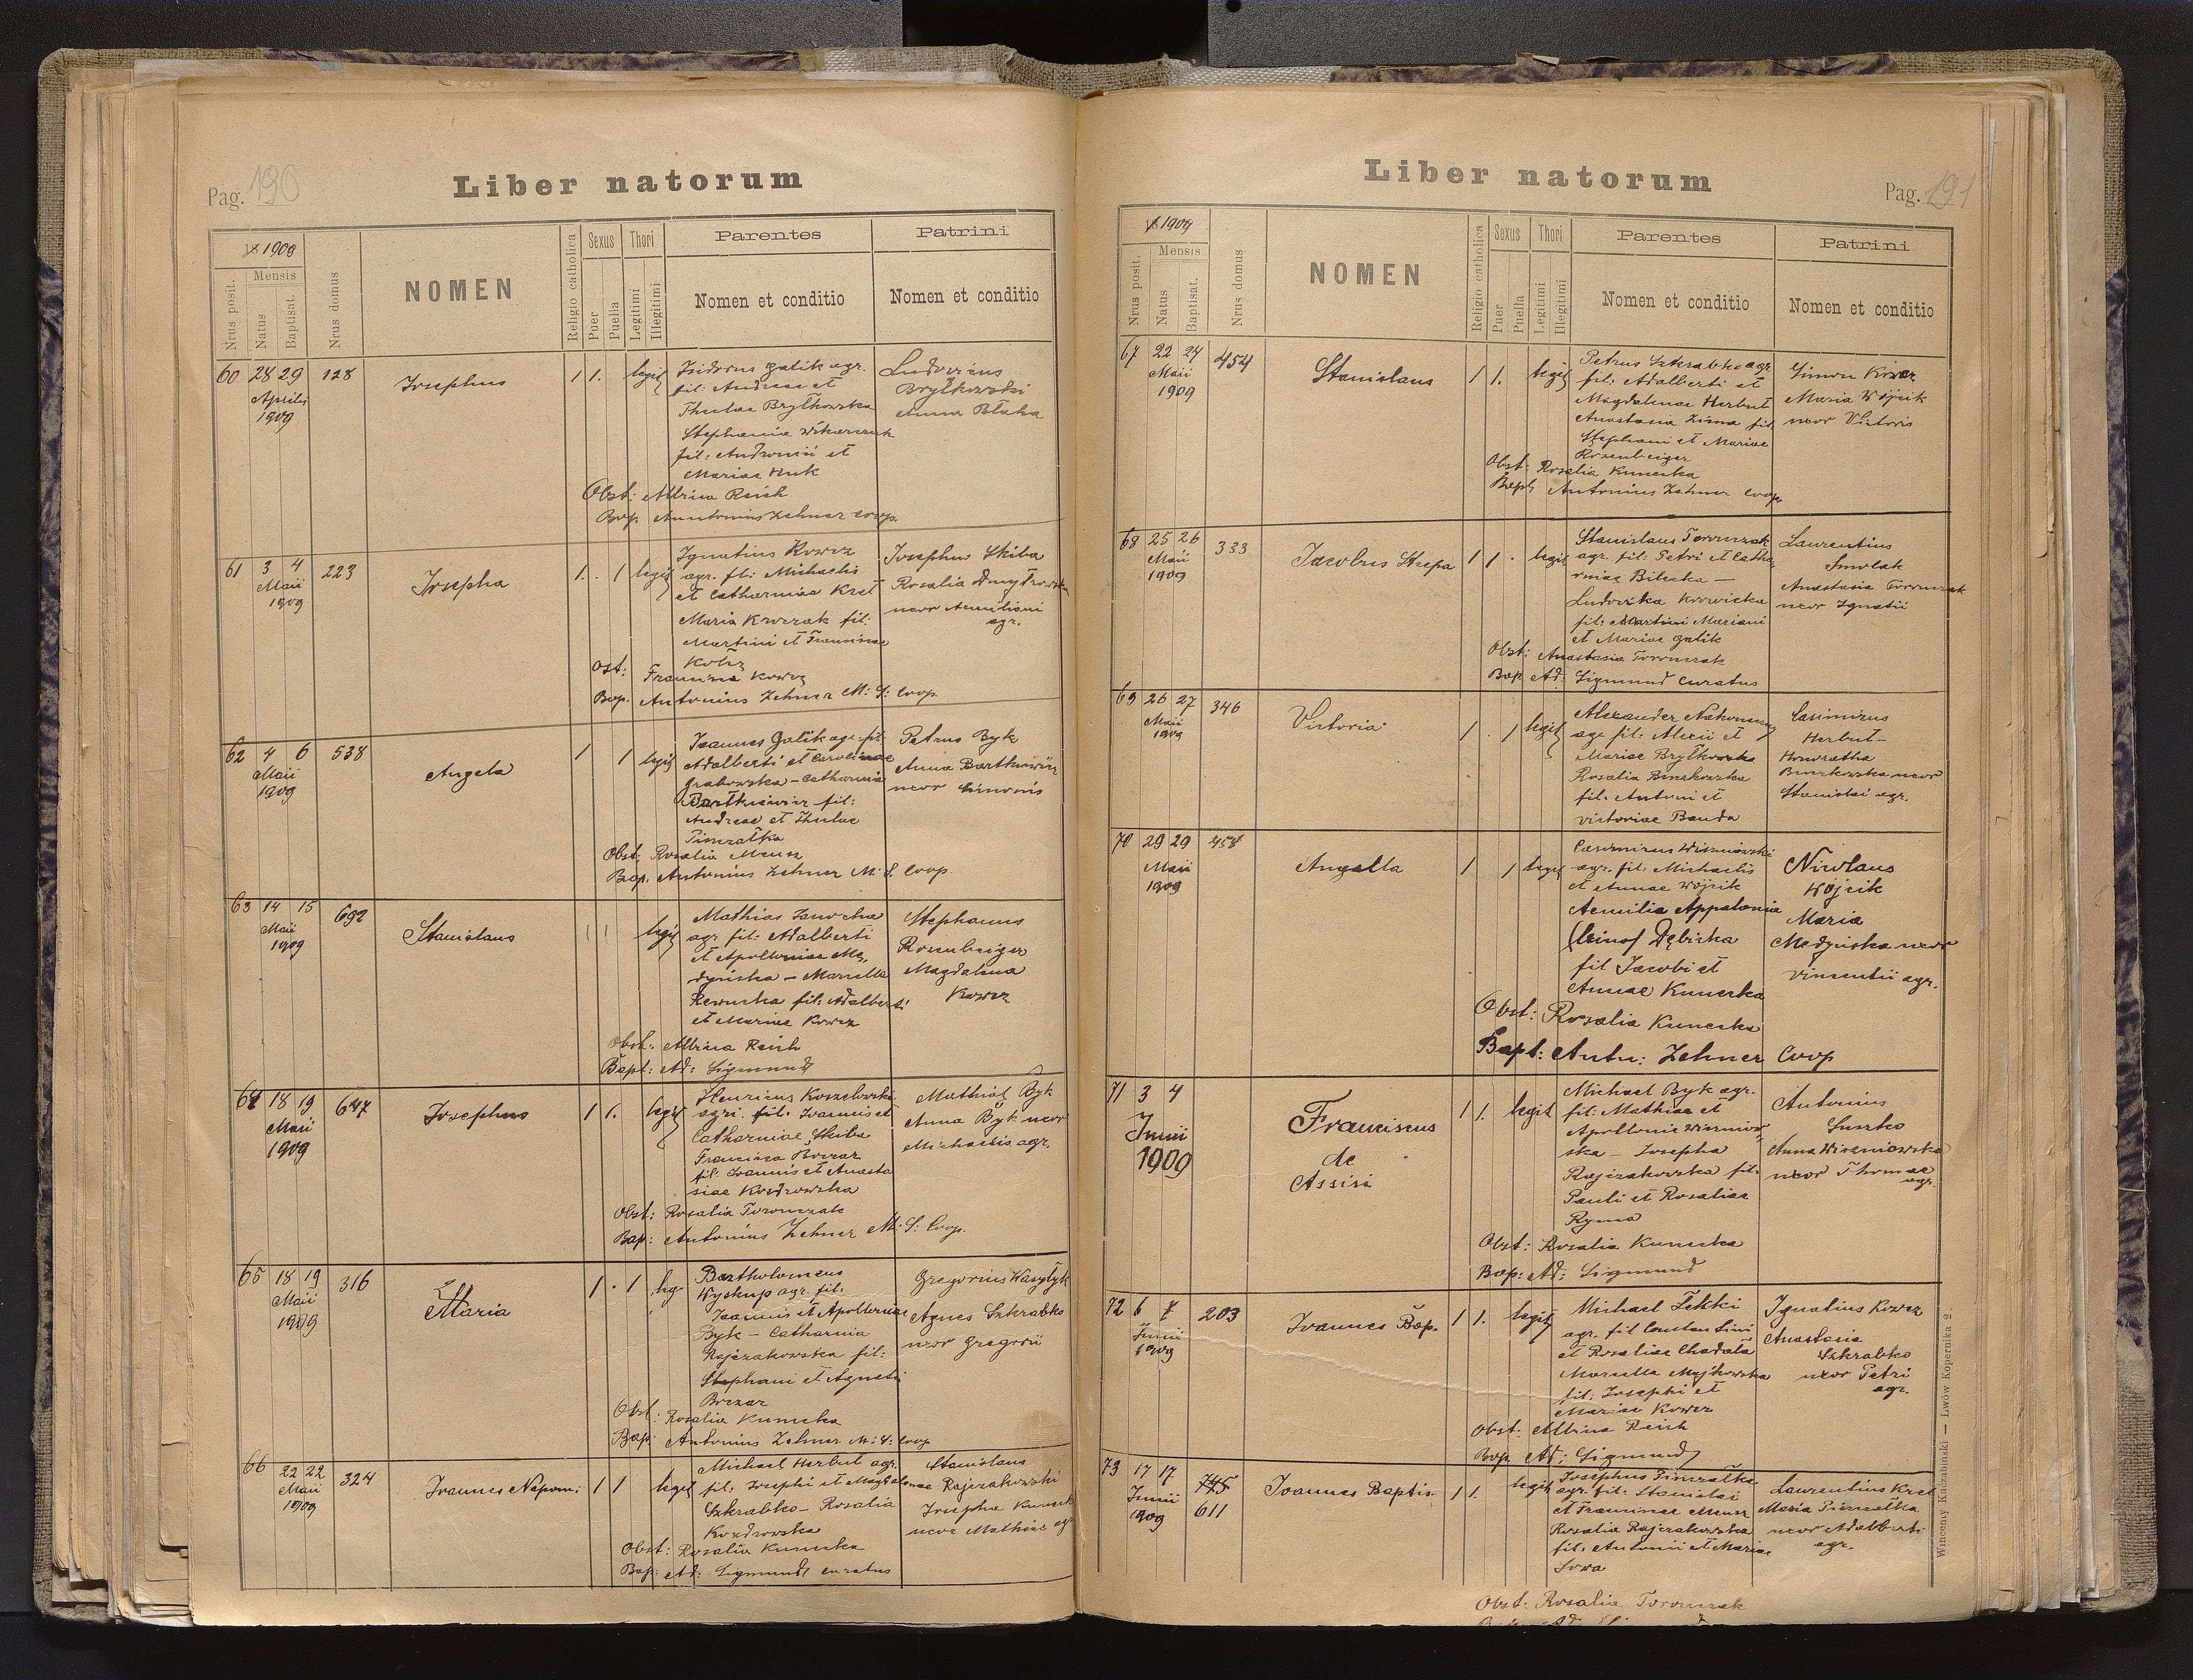 Pag. 190
Liber natorum
18 1909
Nrus posit.
Mensis
Natus
Baptisat.
Nrus domus
NOMEN
Religio catholica
Sexus
Puer
Puella
Thori
Legitimi
Illegitimi
Parentes
Nomen et conditio
Patrini
Nomen et conditio
60 28 29 128 Josephus 1 1. legit
Aprilis
1909
Isidorus Galik agr.
fil: Andreae et
Theclae Bryłkowska
Stephania
fil: Andronici et
Mariae Huk
Ludovicus
Bryłkowski
Anna Błaha
Obst: Albina Reich
Bap. Anntonius Zehner coop.
61 3 4 223 Josepha 1. . 1 legit
Maii
1909
Ignatius Kowcz
agr. fil: Michaelis
et Catharinae Kret
Maria Krorzak fil:
Martini et Franciscae
Kotcz
Josephus Skiba
Rosalia
uxor Aemiliani
agr.
Ost: Francisca Kowcz
Bap. Antonius Zehner M: S: Coop.
62 4 6 538 Angela 1 1 legit
Maii
1909
Ioannes Galik agr. fil:
Adalberti et Carolinae
Grabowska - Catharina
Bartkiewicz fil:
Andreae et Theclae
Pimzałka
Petrus Byk
Anna Bartkiewicz
uxor Simonis
Obst: Rosalia Meusz
Bap. Antonius Zehner M: S. Coop.
63 14 15 692 Stanislaus 1 1 legit
Maii
1909
Mathias Janocha
agr. fil: Adalberti
et Apolloniae Me,
dyńska - Marcella
Rewucka fil: Adalberti
et Mariae Kowcz
Stephanus
Rosenbeiger
Magdalena
Kowcz
Obst: Albina Reich
Bapt: Ad: Sigmund
64 18 19 647 Josephus 1 1. legit
Maii
1909
Henricus Koszelowski
agri. fil: Ioannis et
Catharinae Skiba
Francisca Boczar
fil: Ioannis et Anasta
siae Kozdrowska
Mathias Byk
Anna Byk uxor
Michaelis agr.
Obst: Rosalia Toronczak
Bap: Antonius Zehner M: S: Coop.
65 18 19 316 Maria 1 . 1 leg
Maii
1909
Bartholomeus
Wyskup agr. fil:
Ioannis et Apolloniae
Byk - Catharina
Rajczakowska fil:
Stephani et Agnetis
Boczar
Gregorius Wasyłyk
Agnes Szkrabko
uxor Gregorii
Obst: Rosalia Kunecka
Bap: Antonius Zehner M: S: Coop
66 22 22 324 Ioannes Nepom: 1 1 legit
Maii
1909
Michael Herbut agr.
fil: Josephi et Magdalenae
Szkrabko - Rosalia
Kozdrowska
Stanislaus
Rajczakowski
Josepha
uxor Mathiae agr
Obst: Rosalia Kunecka
Bap: Ad: Sigmund curatus
Pag. 191
Liber natorum
18 1909
Nrus posit.
Mensis
Natus
Baptisat.
Nrus domus
NOMEN
Religio catholica
Sexus
Puer
Puella
Thori
Legitimi
Illegitimi
Parentes
Nomen et conditio
Patrini
Nomen et conditio
67 22 24 454 Stanislaus 1 1. legit
Maii
1909
Petrus Szkrabko agr.
fil: Adalberti et
Magdalenae Herbut
Anastasia Zima fil
Stephani et Mariae
Rosenbeiger
Simon Kowcz
Maria Wójcik
uxor Victoris
Obst: Rosalia Kunecka
Bapt. Antonius Zehner coop.
68 25 26 333 Jacobus Stepa 1 1 . legit
Maii
1909
Stanislaus Toronczak
agr. fil: Petri et Catha,
rinae Bilecka -
Ludovika Krowicka
fil: Martini Mariani
et Mariae Galik
Laurentius
Smolak
Anastasia Toronczak
uxor Ignatii
Obst: Anastasia Toronczak
Bap Ad: Sigmund curatus
69 26 27 346 Victoria 1 . 1 legit
Maii
1909
Alexander
agr fil: Alexii et
Mariae Bryłkowska
Rosalia Binczkowska
fil: Antoni et
Victoriae Banda
Casimirus
Herbut -
Honoratha
Binczkowska uxor
Stanislai agr.
70 29 29 458 Angella 1 1 legit
Maii
1909
Casimirus Wiszniowski
agr. fil: Michaelis
et Annae Wójcik
Aemilia Appolonia
(binof Dębicka
fil Jacobi et
Annae Kunecka
Nicolaus
Wójcik
Maria
Medyńska uxor
Vincentii agr.
Obst: Rosalia Kunecka
Bapt: Antn: Zehner Coop
71 3 4 Franciscus 1 1. legit
Junii de
1909 Assisi
Michael Byk agr.
fil: Mathiae et
Apollonia Wiszniow
ska - Josepha
Rajczakowska fil:
Pauli et Rosaliae
Ryma
Antonius
Suszko
Anna Wiszniowska
uxor Thomae
agr.
Obst: Rosalia Kunecka
Bap: Ad: Sigmund
72 6 7 203 Ioannes Bap. 1 1. legit
Junii
1909
Michael Tekki
agr. fil Constantini
et Rosaliae Chadała
Marcella Majkowska
fil: Josephi et
Mariae Kowcz
Ignatius Kowcz
Anastasia
Szkrabko
uxor Petri
agr.
Obst: Albina Reich
Bap. Ad: Sigmund
73 17 17 745 Ioannes Baptis. 1 1. legit
Junii 611
1909
Josephus Pimzałka
agr. fil: Stanislai
et Franciscae Meusz
Rosalia Rajczakowska
fil: Antonii et Mariae
Sowa
Laurentius Kret
Maria Pimzałka
uxor Adalberti
agr.
Obst: Rosalia Toronczak
Wincenty Kuczabiński — Lwów Kopernika 2.